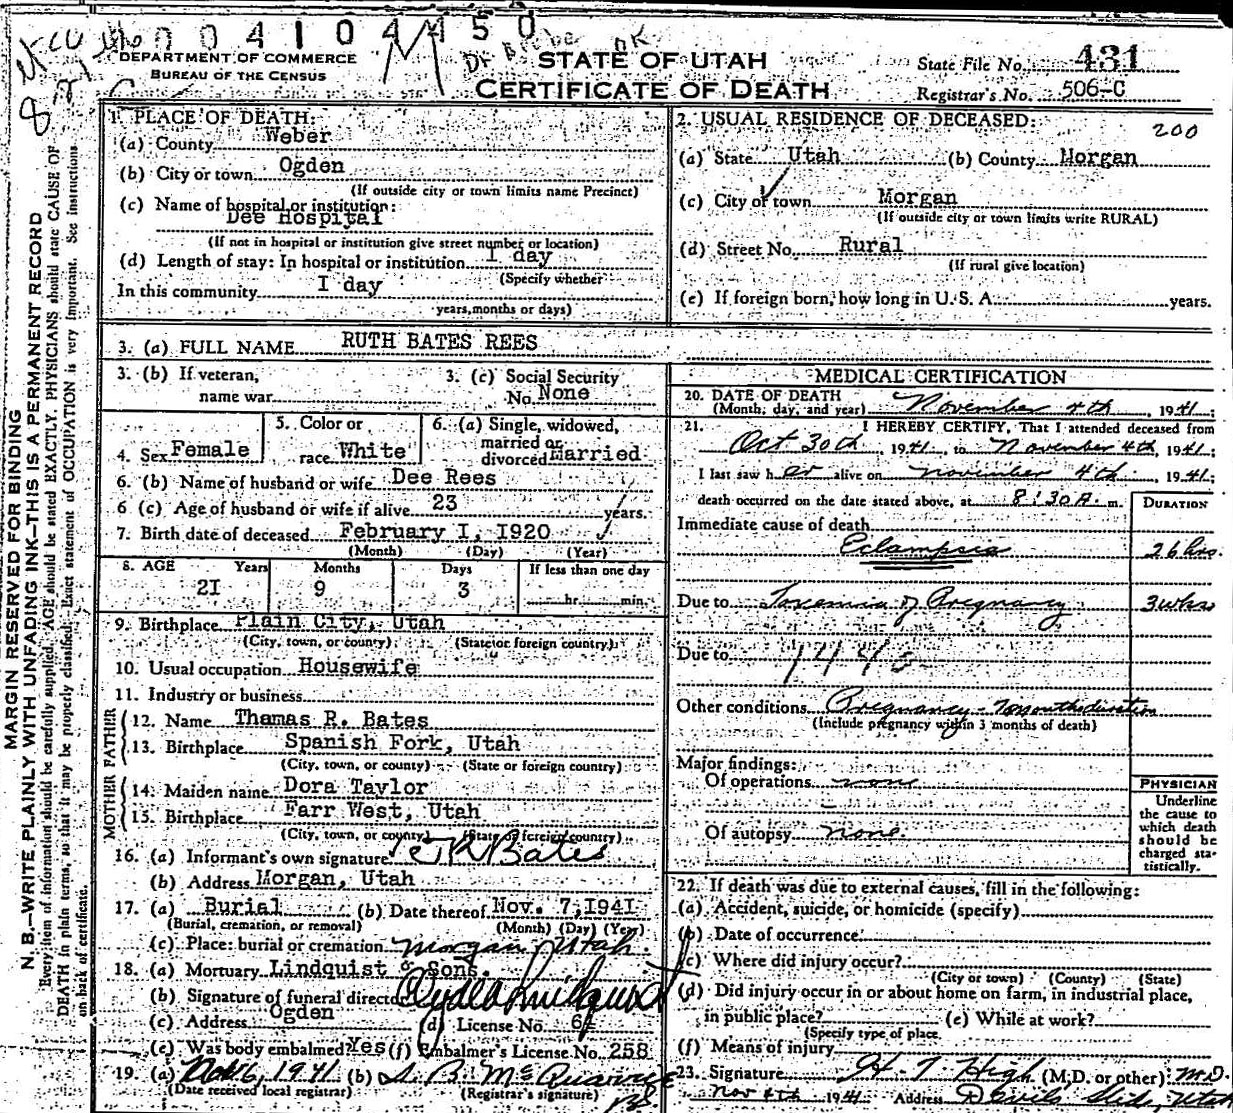 00410 4450
DEPARTMENT OF COMMERCE
BUREAU OF THE CENSUS
STATE OF UTAH
CERTIFICATE OF DEATH
State File No. 431
Registrar's No. 506-C
MARGIN RESERVED FOR BINDING
N. B.—WRITE PLAINLY WITH UNFADING INK—THIS IS A PERMANENT RECORD
Every item of information should be carefully supplied. AGE should be stated EXACTLY. PHYSICIANS should state CAUSE OF
DEATH in plain terms, so that it may be properly classified. Exact statement of OCCUPATION is very important. See instructions
on back of certificate.
1. PLACE OF DEATH:
(a) County Weber
(b) City or town Ogden
(If outside city or town limits name Precinct)
(c) Name of hospital or institution:
Dee Hospital
(If not in hospital or institution give street number or location)
(d) Length of stay: In hospital or institution I day
(Specify whether
In this community I day
years, months or days)
2. USUAL RESIDENCE OF DECEASED: 200
(a) State Utah (b) County Morgan
(c) City or town Morgan
(If outside city or town limits write RURAL)
(d) Street No. Rural
(If rural give location)
(e) If foreign born, how long in U. S. A. years.
3. (a) FULL NAME RUTH BATES REES
3. (b) If veteran,
name war
3. (c) Social Security
No. None
4. Sex Female
5. Color or
race White
6. (a) Single, widowed,
married or
divorced Married
6. (b) Name of husband or wife Dee Rees
6 (c) Age of husband or wife if alive 23 years.
7. Birth date of deceased February I, I920
(Month) (Day) (Year)
8. AGE Years Months Days If less than one day
2I 9 3 hr. min.
9. Birthplace Plain City, Utah
(City, town, or county) (State or foreign country)
10. Usual occupation Housewife
11. Industry or business
FATHER
12. Name Thamas R. Bates
13. Birthplace Spanish Fork, Utah
(City, town, or county) (State or foreign country)
MOTHER
14. Maiden name Dora Taylor
15. Birthplace Farr West, Utah
(City, town, or county) (State or foreign country)
16. (a) Informant's own signature T R Bates
(b) Address Morgan, Utah
17. (a) Burial (b) Date thereof Nov. 7, I94I
(Burial, cremation, or removal) (Month) (Day) (Year)
(c) Place: burial or cremation Morgan, Utah
18. (a) Mortuary Lindquist & Sons.
(b) Signature of funeral director Clyde Lindquist
(c) Address Ogden (d) License No.
(e) Was body embalmed? Yes (f) Embalmer's License No. 258
19. (a) Nov 6, 1941 (b) S. B. McQuarrie
(Date received local registrar) (Registrar's signature)
MEDICAL CERTIFICATION
20. DATE OF DEATH
(Month, day, and year) November 4th, 1941;
21. I HEREBY CERTIFY, That I attended deceased from
Oct 30th, 1941, to November 4th, 1941;
I last saw her alive on November 4th, 1941;
death occurred on the date stated above, at 8:30 A. m. DURATION
Immediate cause of death
Eclampsia 26 hrs.
Due to Toxemia of Pregnancy 3 wks
Due to
Other conditions Pregnancy - 7 months duration
(Include pregnancy within 3 months of death)
Major findings:
Of operations none
Of autopsy none
PHYSICIAN
Underline
the cause to
which death
should be
charged sta-
tistically.
22. If death was due to external causes, fill in the following:
(a) Accident, suicide, or homicide (specify)
(b) Date of occurrence
(c) Where did injury occur?
(City or town) (County) (State)
(d) Did injury occur in or about home on farm, in industrial place,
in public place? (e) While at work?
(Specify type of place
(f) Means of injury
23. Signature H. T. High (M.D. or other) M.D.
Nov 4th 1941 Address Devils Slide, Utah